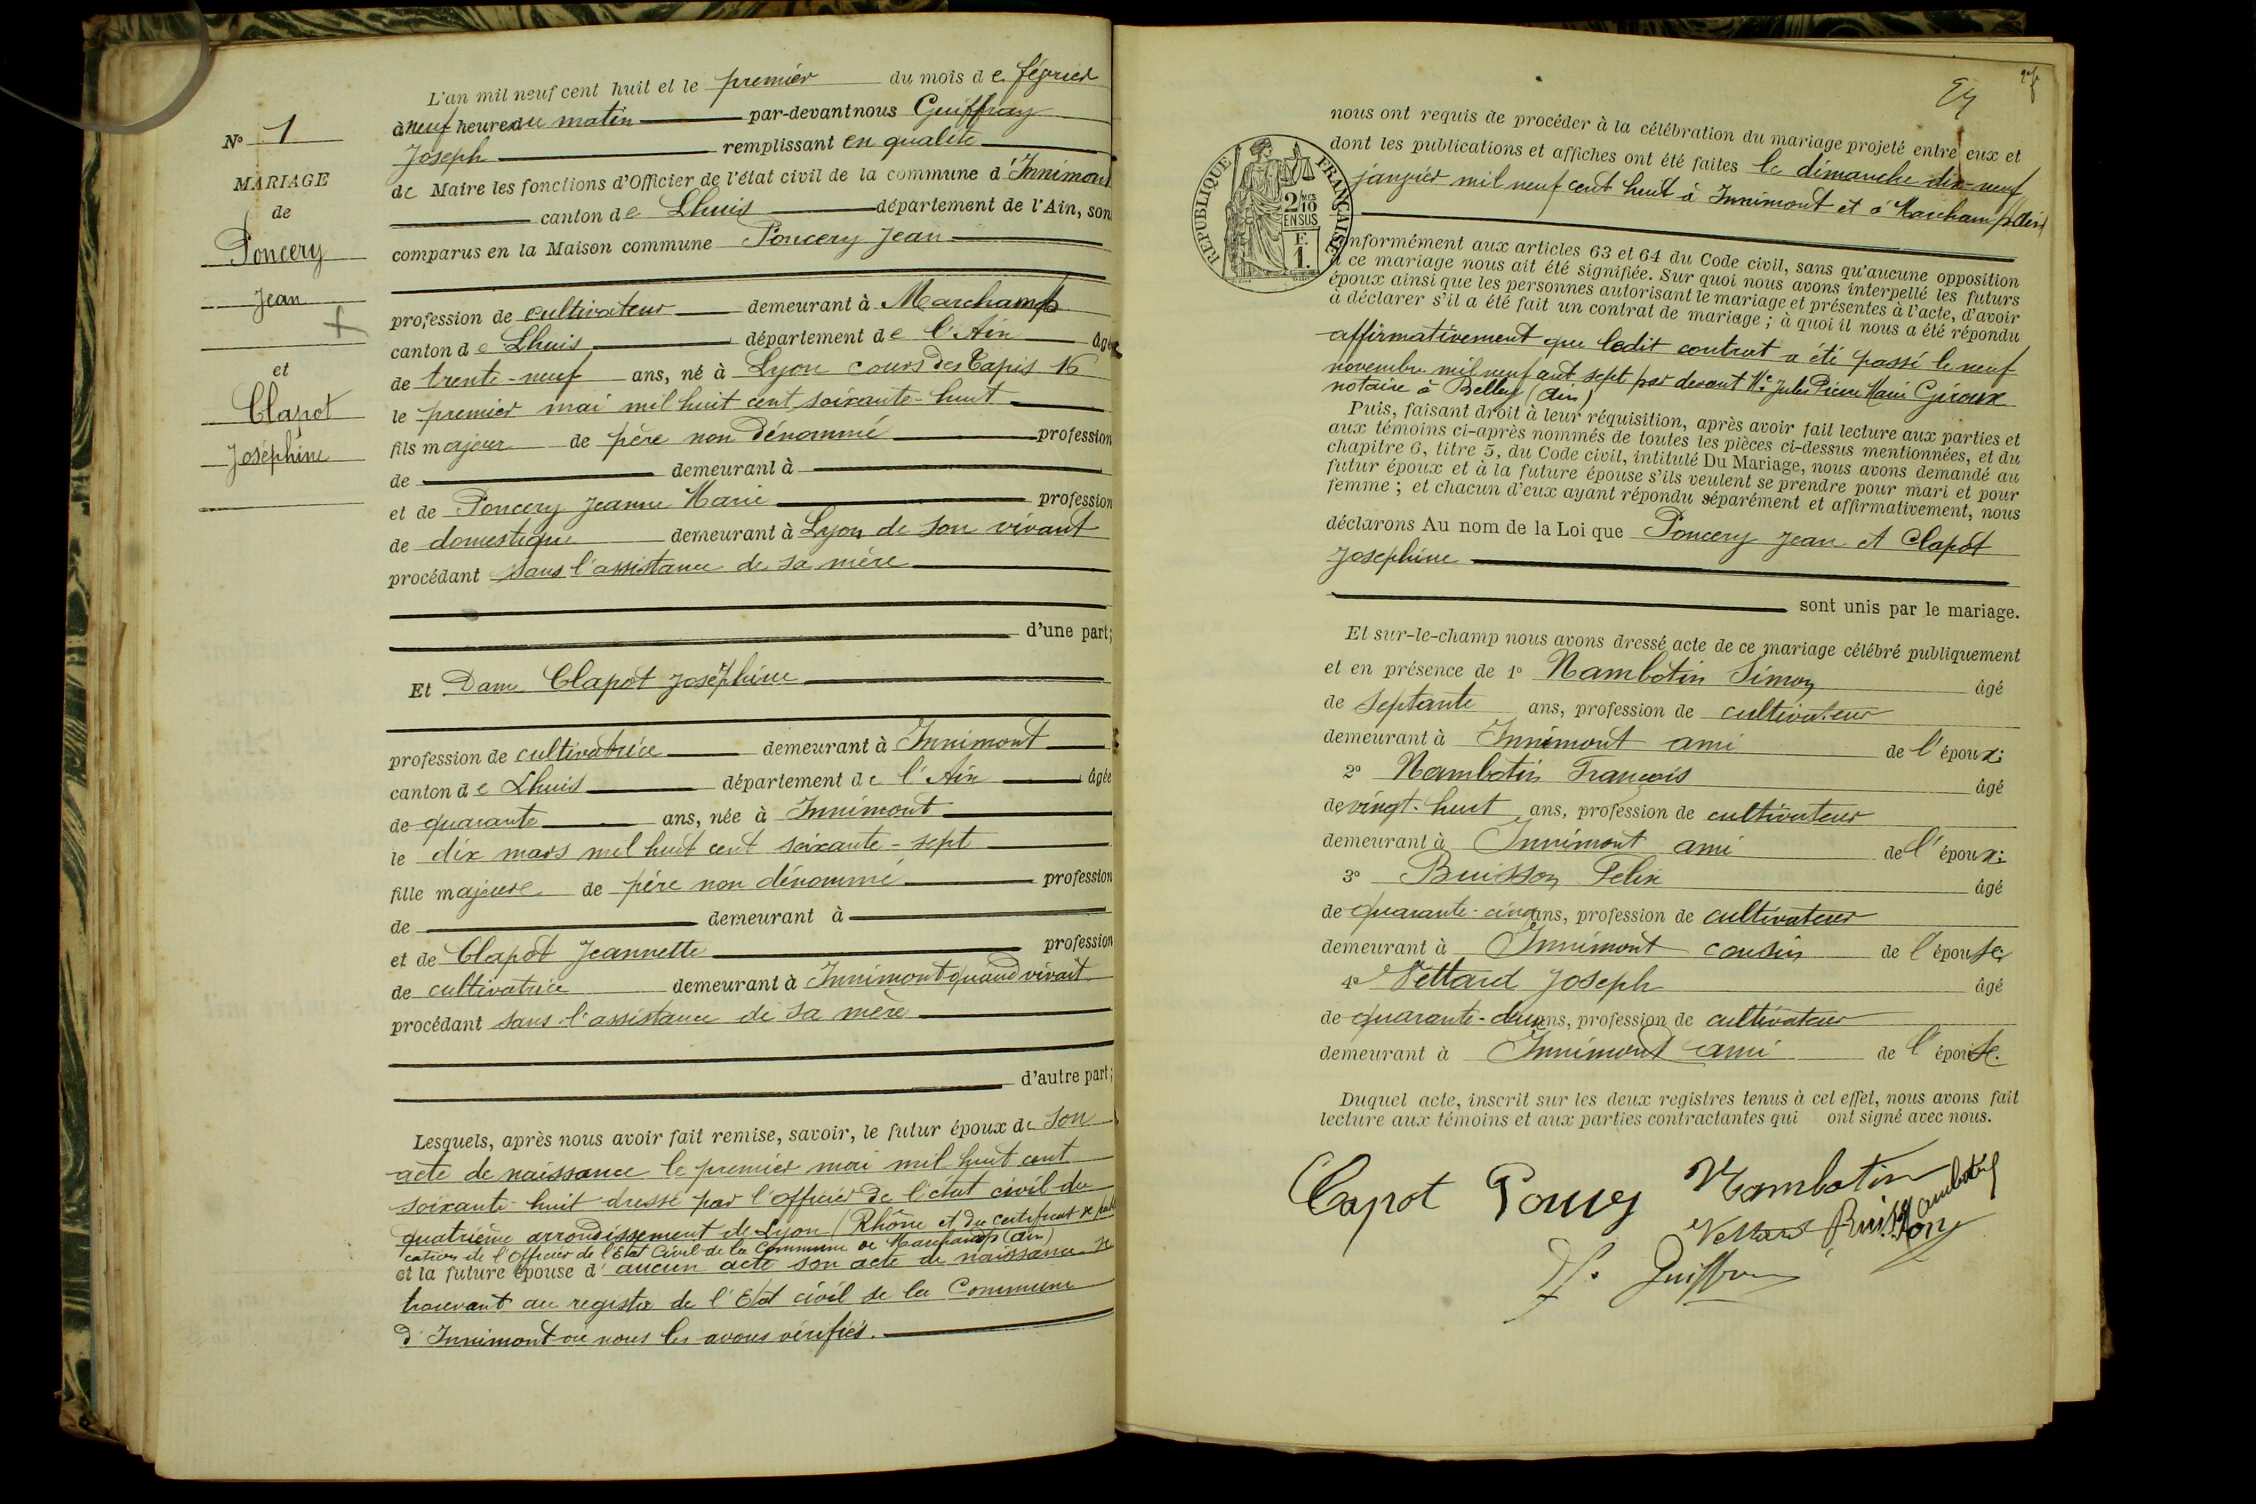 L'an mil neuf cent huit et le premier du mois de février
à neuf heures du matin par-devant nous Guiffray
Joseph remplissant en qualité
de Maire les fonctions d'Officier de l'état civil de la commune d'Innimont
canton de Lhuis département de l'Ain, son
comparus en la Maison commune Poncery Jean
profession de cultivateur demeurant à Marchamp
canton de Lhuis département de l'Ain âgé
de trente-neuf ans, né à Lyon cours des Tapis 16
le premier mai mil huit cent soixante-huit
fils majeur de père non dénommé profession
de demeurant à
et de Poncery Jeanne Marie profession
de domestique demeurant à Lyon de son vivant
procédant sans l'assistance de sa mère
d'une part;
Et Dame Clapot Joséphine
profession de cultivatrice demeurant à Innimont
canton de Lhuis département de l'Ain âgée
de quarante ans, née à Innimont
le dix mars mil huit cent soixante-sept
fille majeure de père non dénommé profession
de demeurant à
et de Clapot Jeannette profession
de cultivatrice demeurant à Innimont quand vivait
procédant sans l'assistance de sa mère
d'autre part;
Lesquels, après nous avoir fait remise, savoir, le futur époux de son
acte de naissance le premier mai mil huit cent
soixante-huit dressé par l'officier de l'état civil du
quatrième arrondissement de Lyon (Rhône et du certificat de publi
cation de l'Officier de l'Etat Civil de la Commune de Marchamp (Ain)
et la future épouse d'aucun acte son acte de naissance se
trouvant au registre de l'Etat civil de la Commune
d'Innimont où nous les avons vérifiés.
N° 1
MARIAGE
de
Poncery
Jean
et
Clapot
Joséphine
24
nous ont requis de procéder à la célébration du mariage projeté entre eux et
dont les publications et affiches ont été faites le dimanche dix-neuf
janvier mil neuf cent huit à Innimont et à Marchamp (Ain)
RÉPUBLIQUE FRANÇAISE
2/10
EN SUS
F.
1.
Conformément aux articles 63 et 64 du Code civil, sans qu'aucune opposition
à ce mariage nous ait été signifiée. Sur quoi nous avons interpellé les futurs
époux ainsi que les personnes autorisant le mariage et présentes à l'acte, d'avoir
à déclarer s'il a été fait un contrat de mariage; à quoi il nous a été répondu
affirmativement que ledit contrat a été passé le neuf
novembre mil neuf cent sept par devant Me Jules Pierre Marie Giroux
notaire à Belley (Ain)
Puis, faisant droit à leur réquisition, après avoir fait lecture aux parties et
aux témoins ci-après nommés de toutes les pièces ci-dessus mentionnées, et du
chapitre 6, titre 5, du Code civil, intitulé Du Mariage, nous avons demandé au
futur époux et à la future épouse s'ils veulent se prendre pour mari et pour
femme; et chacun d'eux ayant répondu séparément et affirmativement, nous
déclarons Au nom de la Loi que Poncery Jean et Clapot
Josephine
sont unis par le mariage.
Et sur-le-champ nous avons dressé acte de ce mariage célébré publiquement
et en présence de 1° Nambotin Simon âgé
de septante ans, profession de cultivateur
demeurant à Innimont ami de l'époux;
2° Nambotin François âgé
de vingt-huit ans, profession de cultivateur
demeurant à Innimont ami de l'époux;
3° Buisson Felix âgé
de quarante-cinq ans, profession de cultivateur
demeurant à Innimont cousin de l'épouse
4° Vettard Joseph âgé
de quarante-deux ans, profession de cultivateur
demeurant à Innimont ami de l'épouse.
Duquel acte, inscrit sur les deux registres tenus à cet effet, nous avons fait
lecture aux témoins et aux parties contractantes qui ont signé avec nous.
Clapot Poncery Nambotin
Nambotin
Vettard Buisson
J. Guiffray